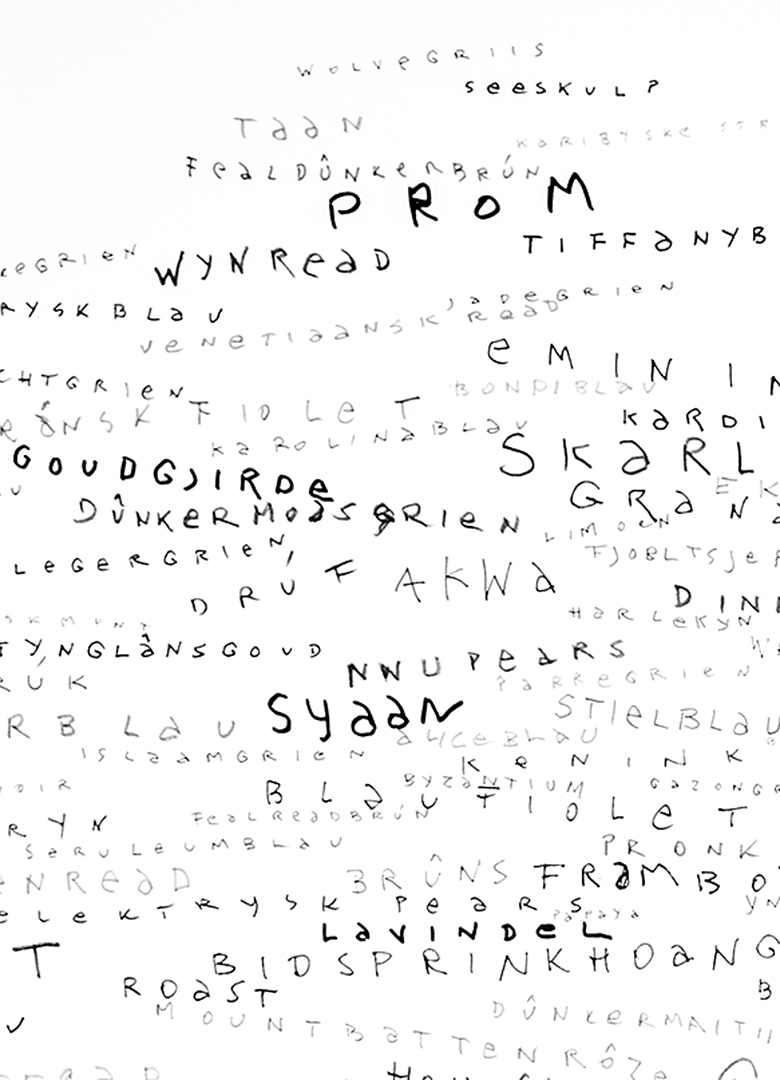 WOLVEGRIIS
SEESKULP
TAAN
KARIBYSKE STR
FEALDÛNKERBRÚN
PROM
TIFFANYB
EGRIEN
WYNREAD
RYSKBLAU
JADEGRIEN
VENETIAANSK READ
EMIN IN
CHTGRIEN
BONDIBLAU
RÂNSK FIOLET
KARDI
KAROLINABLAU
GOUDGJIRDE
SKARL
GRANA
DÛNKERMOASGRIEN
LIMOEN
LEGERGRIEN
FJOBLTSJEP
DRUF
AKWA
DINN
HARLEKYN
TYNGLÂNSGOUD
NWUPEARS
RUK
PARREGRIEN
RBLAU
SYAAN
STIELBLAU
ALICEBLAU
ISLAAMGRIEN
KENINK
BLAU FIOLET
BYZANTIUM
GAZONGR
RYN
FEALREADBRÚN
SERULEUMBLAU
PRONK
ENREAD
BRÛNS
FRAMBO
ELEKTRYSK PEARS
PAPAYA
YN
LAVINDEL
T
BIDSPRINKHOANG
ROAST
B
MOUNTBATTEN RÔZE
DÛNKERMAITII
U